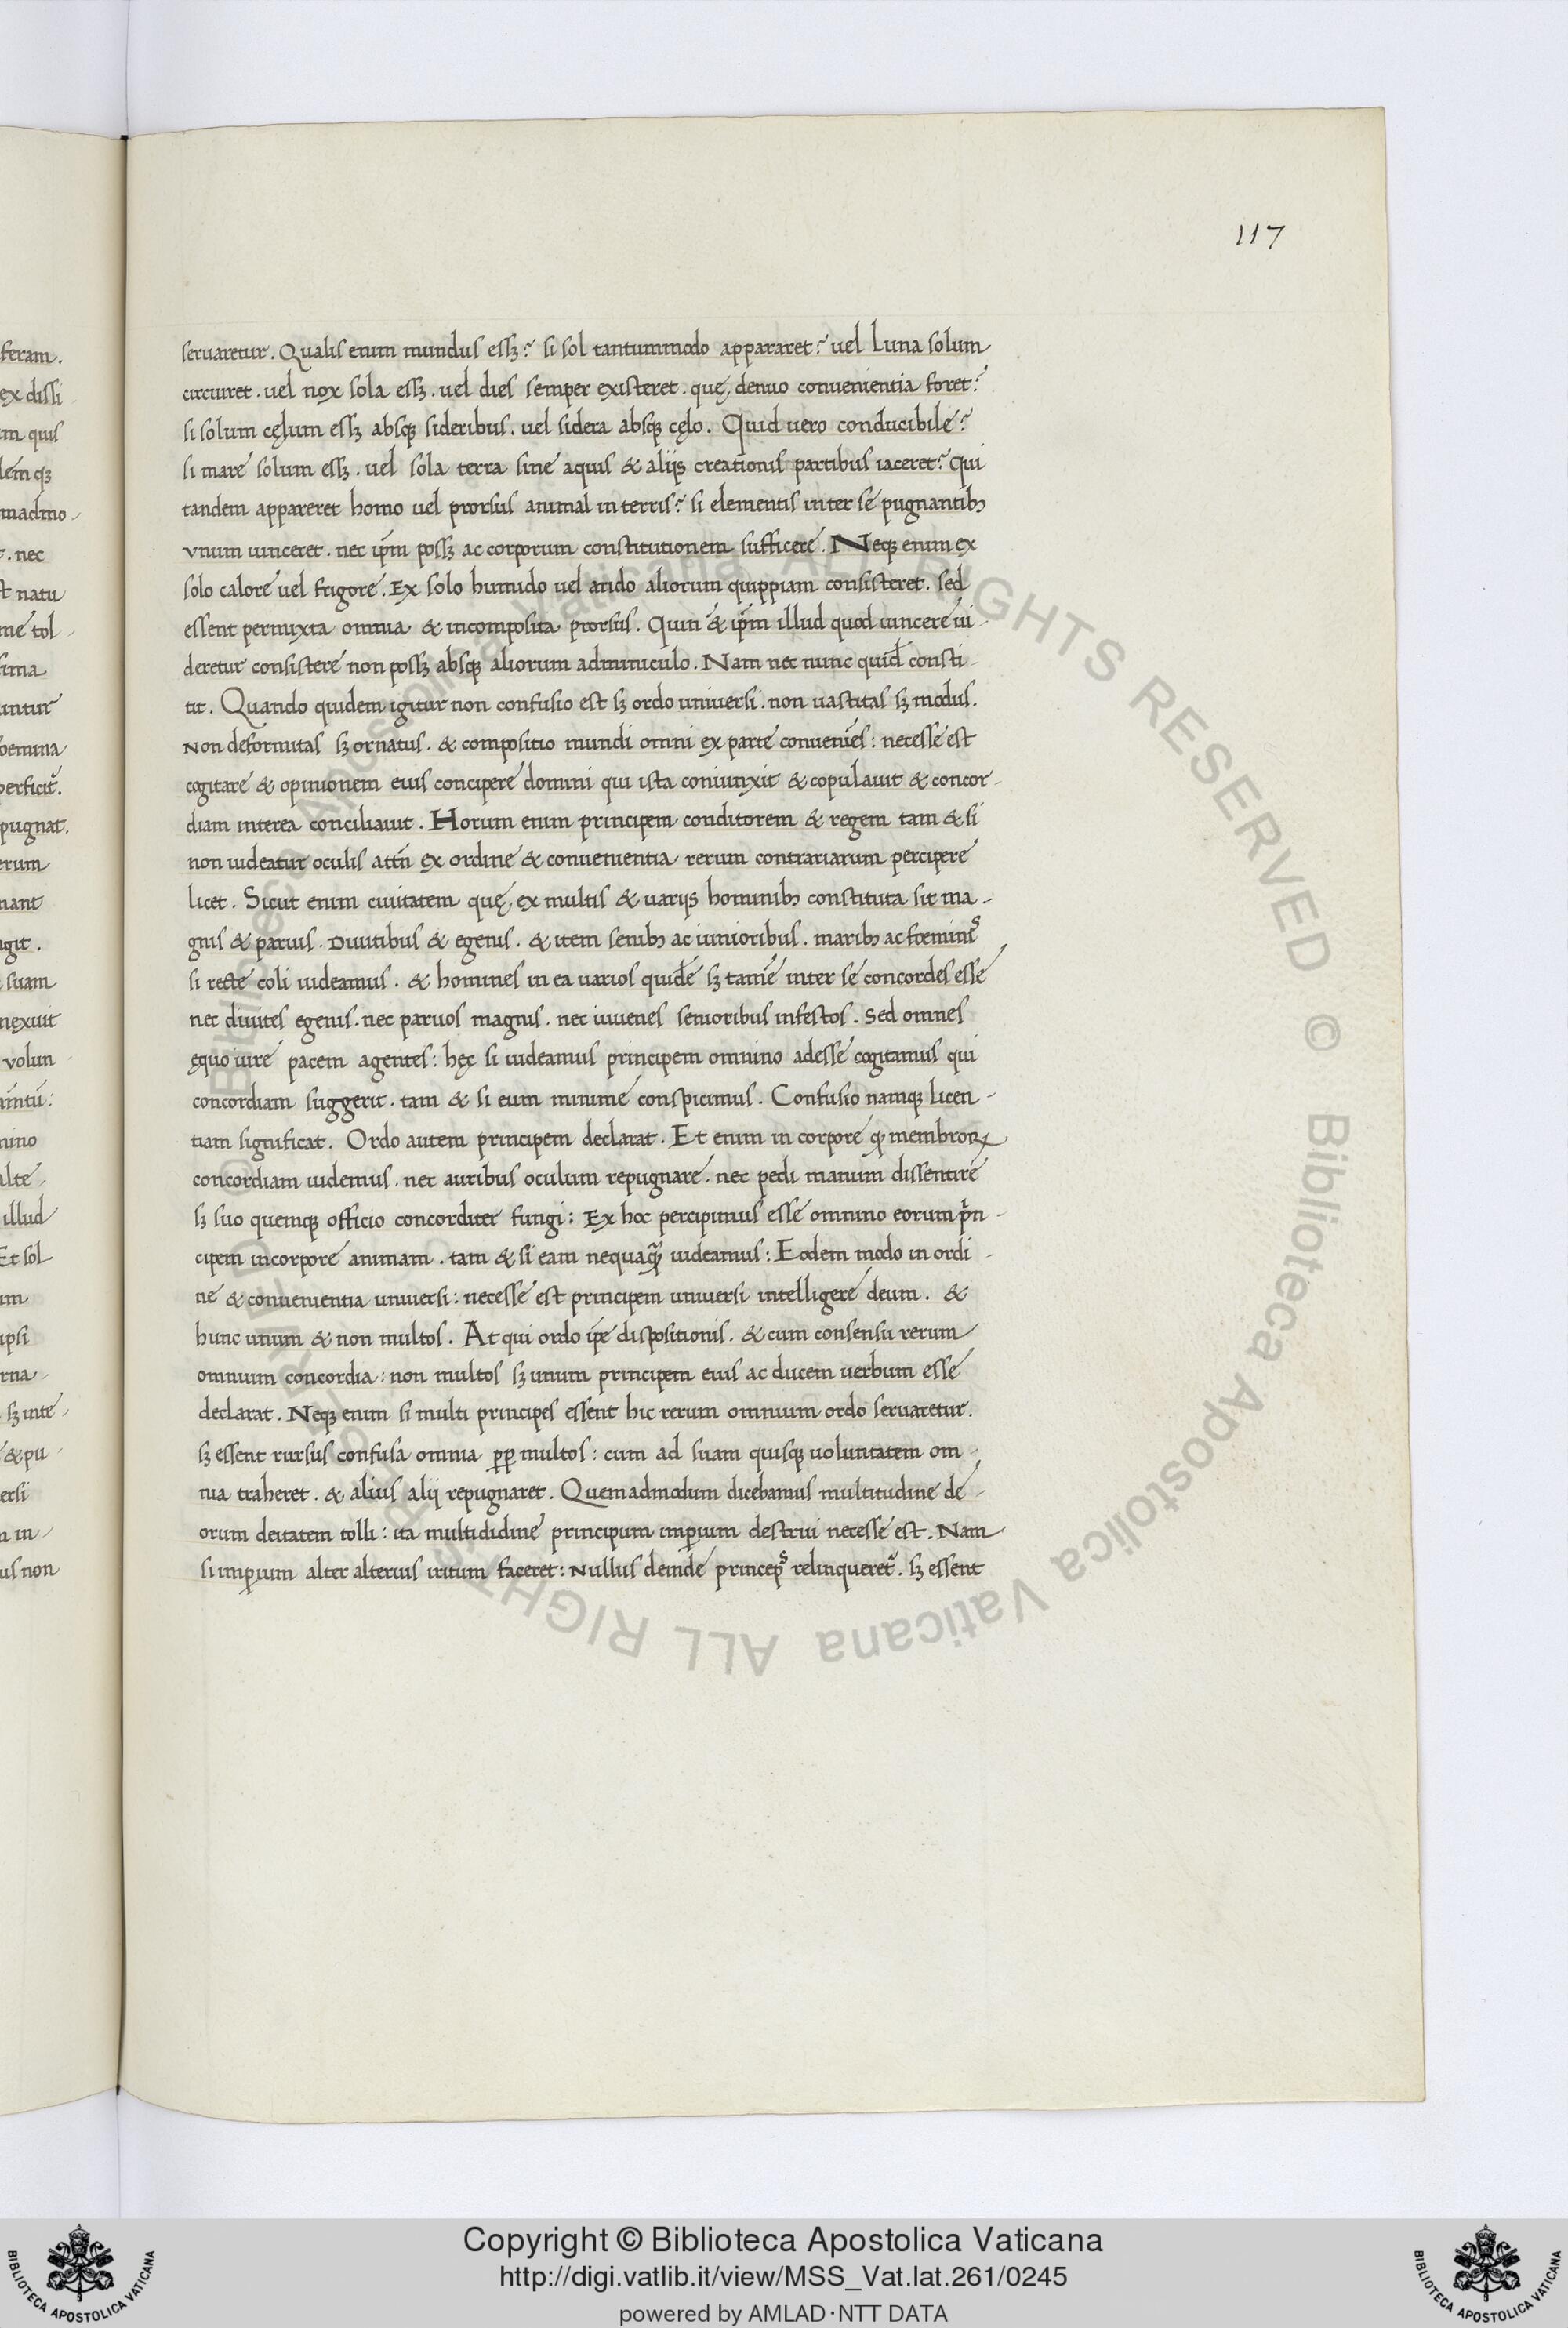 117
seruaretur. Qualis enim mundus essꝫ? si sol tantummodo appararet? uel Luna solum
circuiret. uel nox sola essꝫ. uel dies semper existeret. quę denuo conuenientia foret?
si solum cęlum essꝫ absqꝫ sideribus. uel sidera absqꝫ cęlo. Quid uero conducibile?
si mare solum essꝫ. uel sola terra sine aquis & aliis creationis partibus iaceret? Qui
tandem appareret homo uel prorsus animal in terris? si elementis inter se pugnantibꝫ
vnum uinceret. nec ip̄m possꝫ ac corporum constitutionem sufficere. Neqꝫ enim ex
solo calore uel frigore. Ex solo humido uel arido aliorum quippiam consisteret. sed
essent permixta omnia & incomposita prorsus. Quin & ip̄m illud quod uincere ui-
deretur consistere non possꝫ absqꝫ aliorum adminiculo. Nam nec nunc quid̄ consti-
tit. Quando quidem igitur non confusio est sꝫ ordo uniuersi. non uastitas sꝫ modus.
Non deformitas sꝫ ornatus. & compositio mundi omni ex parte conueniēs: necesse est
cogitare & opinionem eius concipere domini qui ista coniunxit & copulauit & concor-
diam interea conciliauit. Horum enim principem conditorem & regem tam & si
non uideatur oculis attn̄ ex ordine & conuenientia rerum contrariarum percipere
licet. Sicut enim ciuitatem quę ex multis & uariis hominibꝫ constituta sit ma-
gnis & paruis. Diuitibus & egenis. & item senibꝫ ac iunioribus. maribꝫ ac foeminis
si recte coli uideamus. & homines in ea uarios quidē sꝫ tamē inter se concordes esse
nec diuites egenis. nec paruos magnis. nec iuuenes senioribus infestos. Sed omnes
ęquo iure pacem agentes: hęc si uideamus principem omnino adesse cogitamus qui
concordiam suggerit. tam & si eum minime conspicimus. Confusio namqꝫ licen-
tiam significat. Ordo autem principem declarat. Et enim in corpore ꝙ membroꝝ
concordiam uidemus. nec auribus oculum repugnare. nec pedi manum dissentire
sꝫ suo quemqꝫ officio concorditer fungi: Ex hoc percipimus esse omnino eorum p̄n-
cipem in corpore animam. tam & si eam nequaꝙ̄ uideamus: Eodem modo in ordi-
ne & conuenientia uniuersi: necesse est principem uniuersi intelligere deum. &
hunc unum & non multos. At qui ordo ip̄e dispositionis. & cum consensu rerum
omnium concordia: non multos sꝫ unum principem eius ac ducem uerbum esse
declarat. Neqꝫ enim si multi principes essent hic rerum omnium ordo seruaretur.
sꝫ essent rursus confusa omnia ꝑꝑ multos: cum ad suam quisqꝫ uoluntatem om-
nia traheret. & alius alii repugnaret. Quemadmodum dicebamus multitudine de-
orum deitatem tolli: ita multididine principum imꝑium destrui necesse est. Nam
si imꝑium alter alterius iritum faceret: Nullus deinde princeps relinqueret᷑. sꝫ essent
Copyright © Biblioteca Apostolica Vaticana
http://digi.vatlib.it/view/MSS_Vat.lat.261/0245
powered by AMLAD·NTT DATA